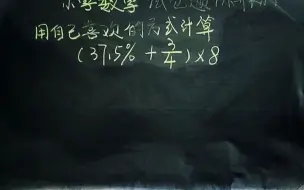 小学数学
用自己喜欢的方式计算
(37.5% + 3/4) × 8